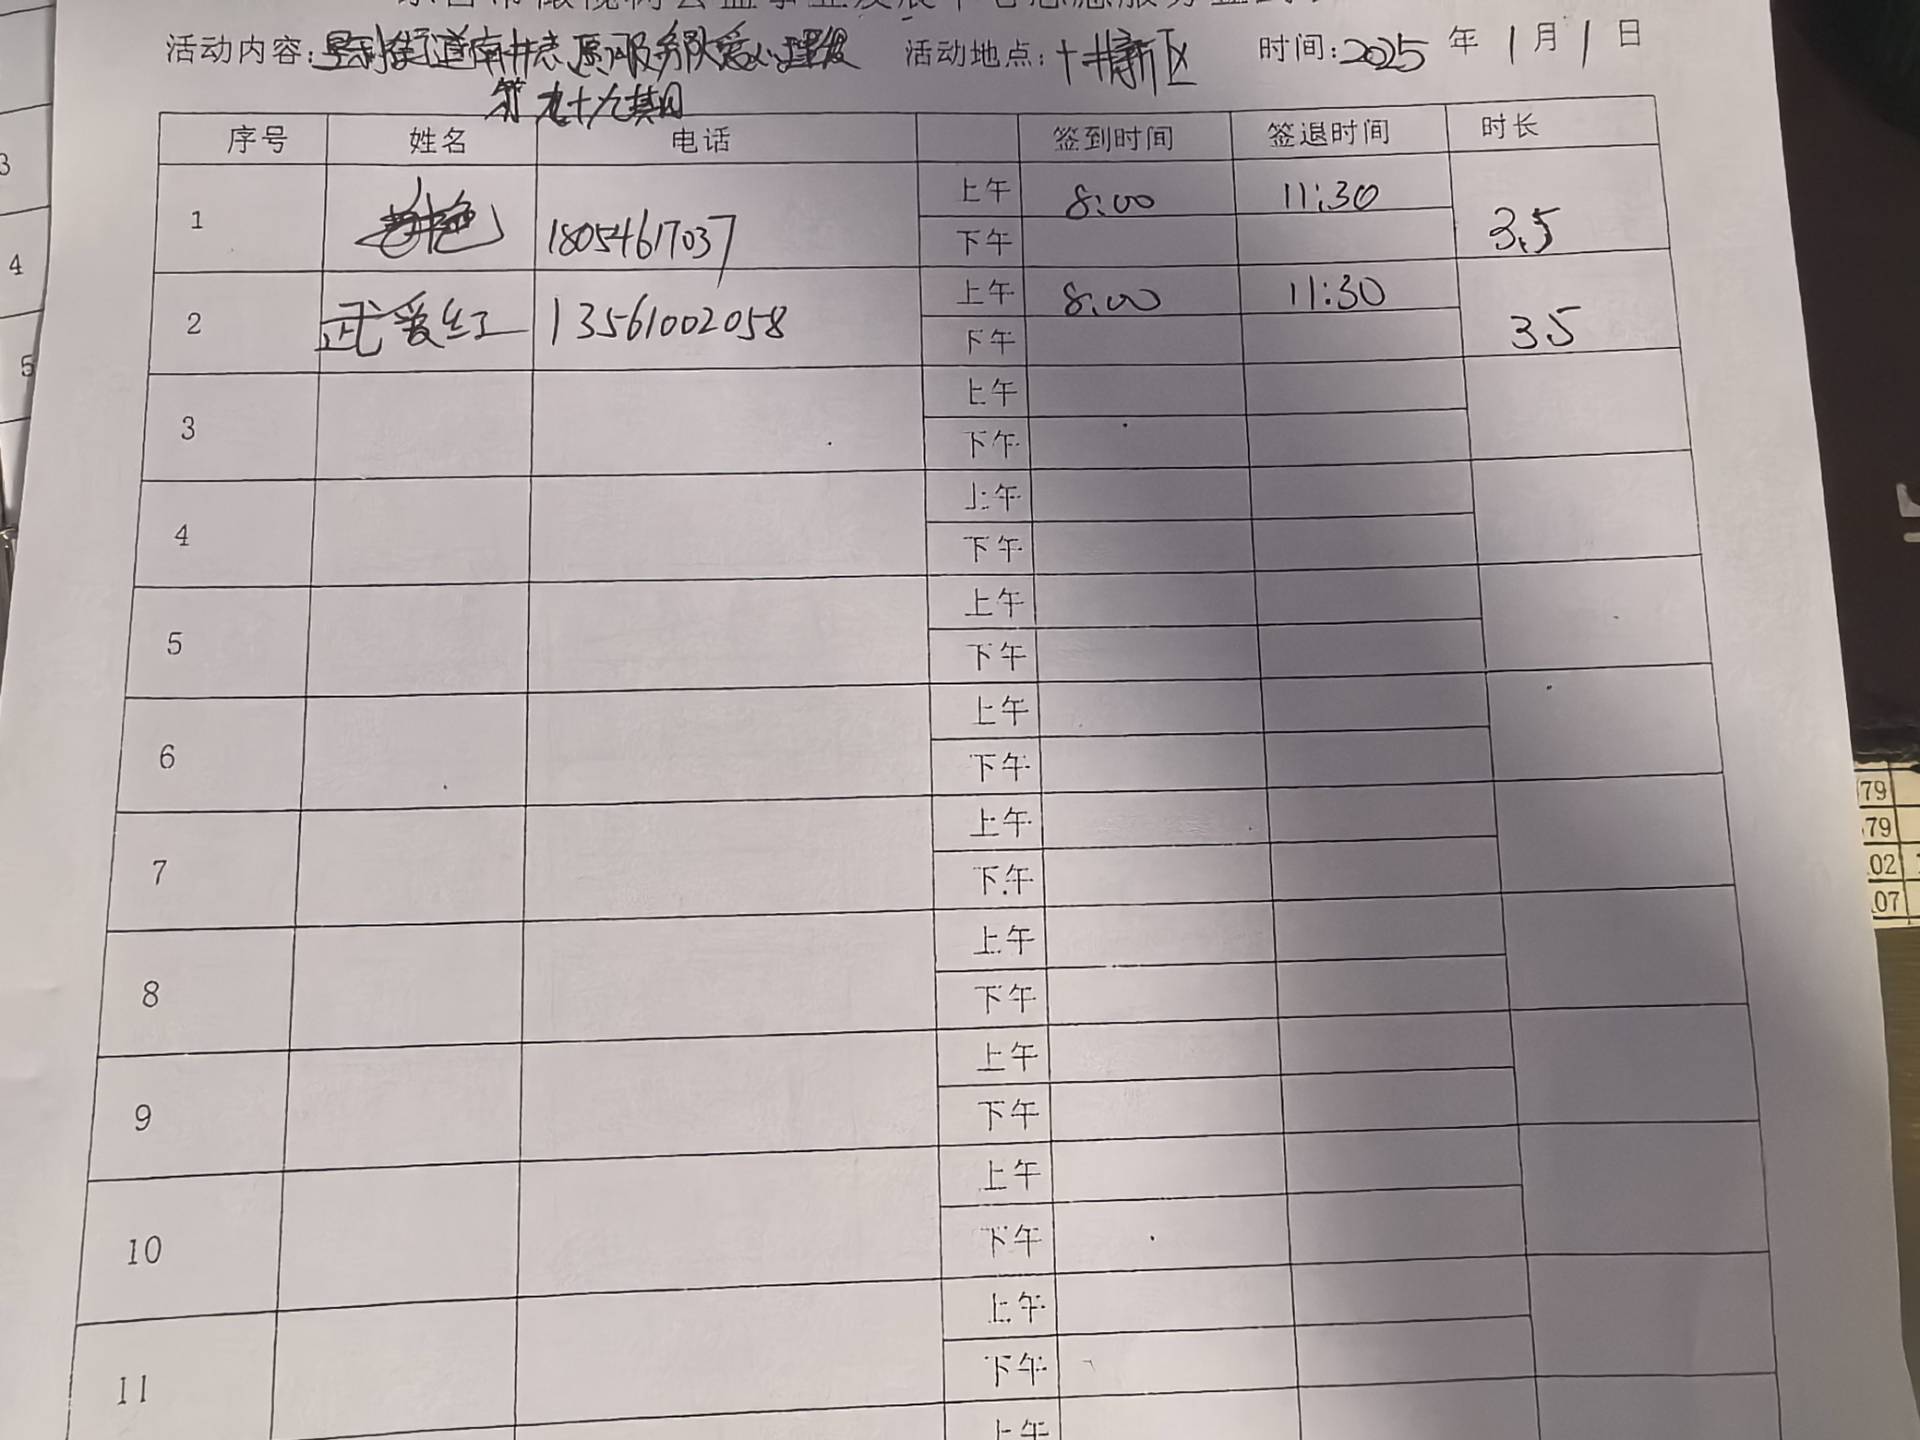 东营市橄榄树公益事业发展中心志愿服务签到表
活动内容: 垦利街道南井志愿服务队爱心理发 活动地点: 十井新区 时间: 2025 年 1 月 1 日
第九十九期
序号 姓名 电话 签到时间 签退时间 时长
1 18054617037 上午 8:00 11:30 3.5
下午
2 武爱红 13561002058 上午 8:00 11:30 3.5
下午
3 上午
下午
4 上午
下午
5 上午
下午
6 上午
下午
7 上午
下午
8 上午
下午
9 上午
下午
10 上午
下午
11 上午
下午
上午
3
4
5
79
79
02
07